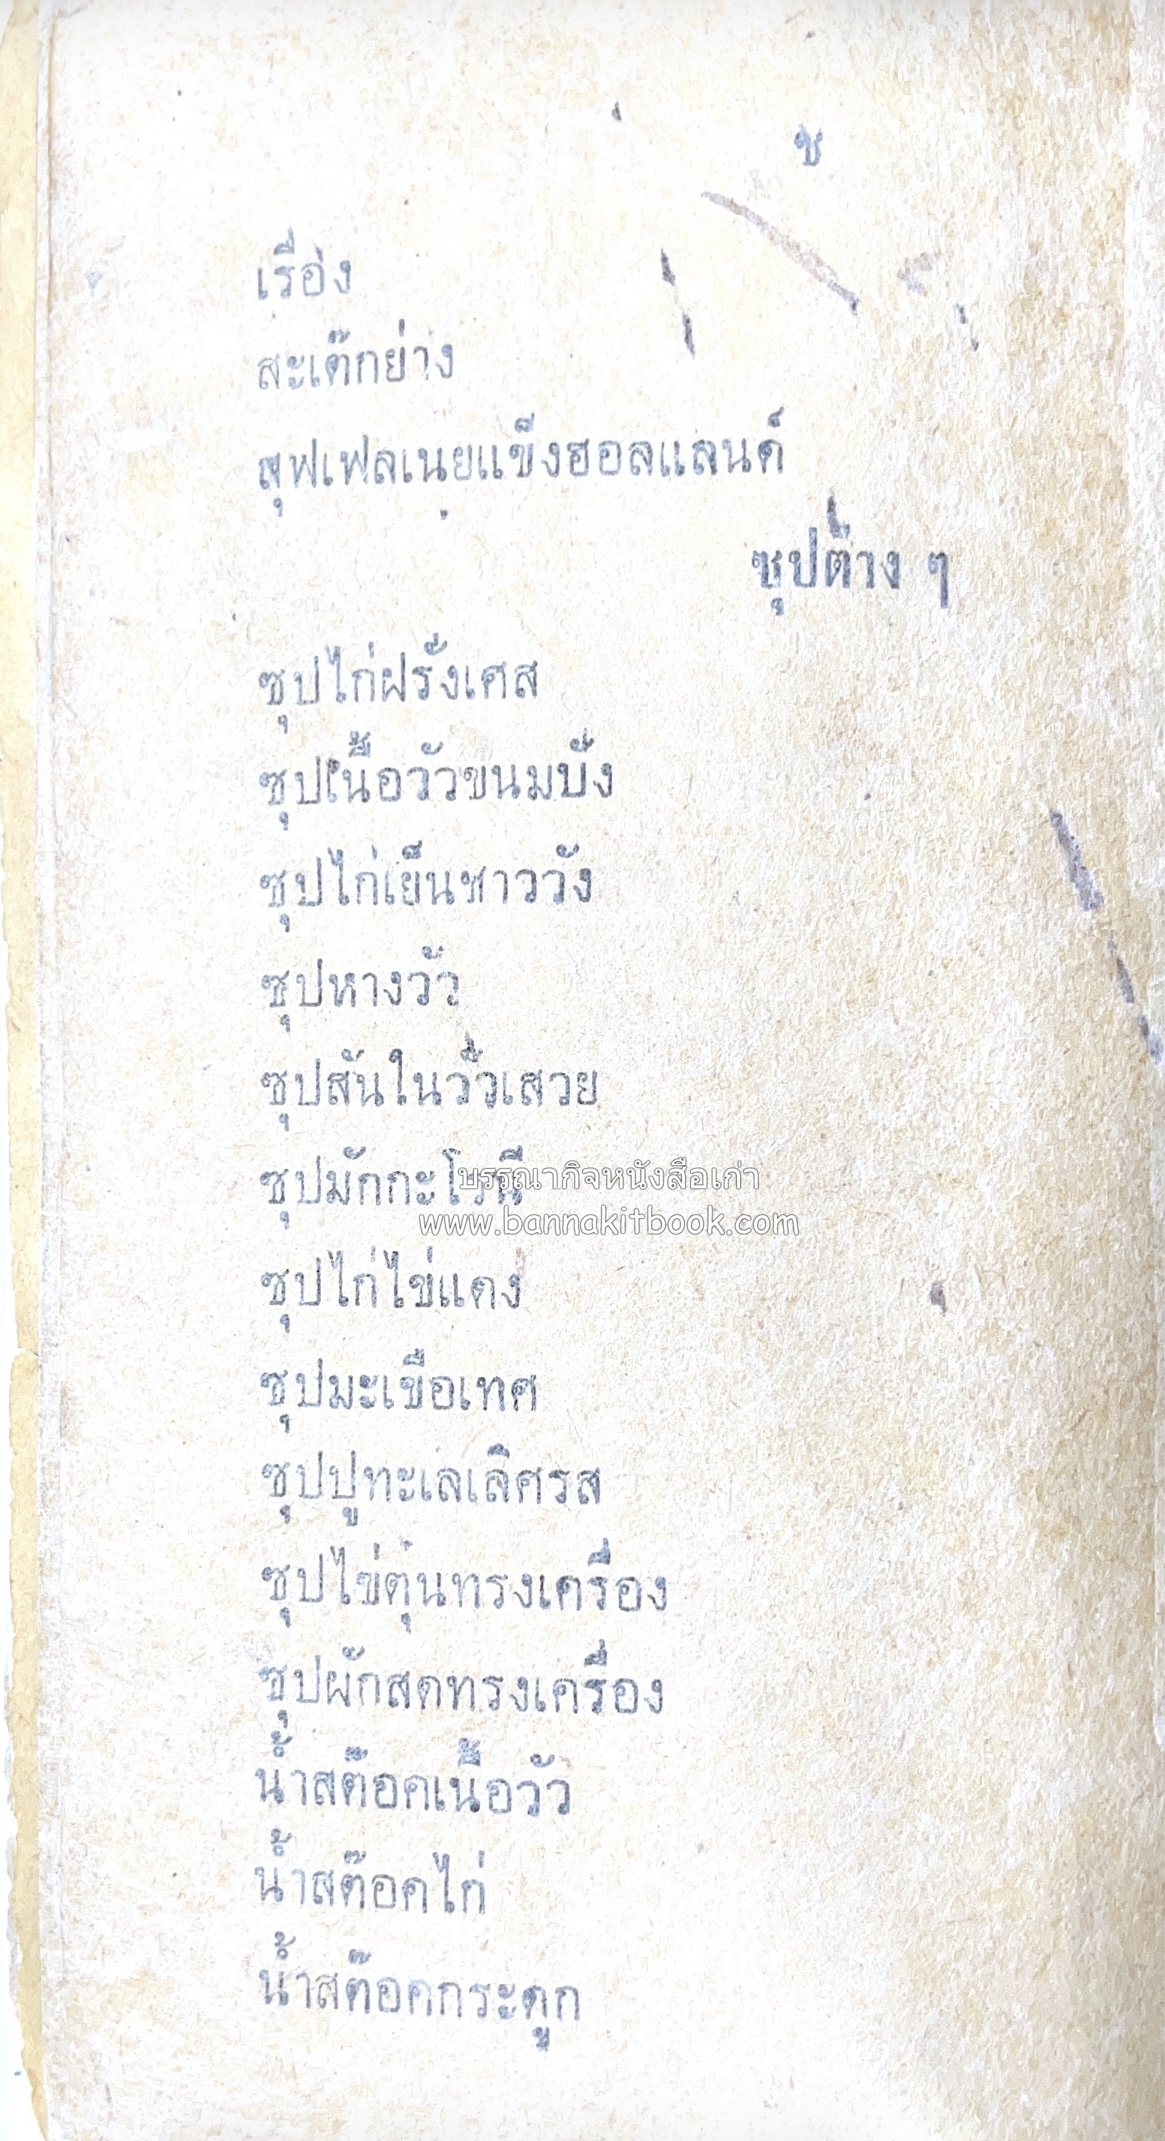 ช
เรื่อง
สะเต๊กย่าง
สุฟเฟลเนยแข็งฮอลแลนด์
ซุปต่าง ๆ
ซุปไก่ฝรั่งเศส
ซุปเนื้อวัวขนมปัง
ซุปไก่เย็นชาววัง
ซุปหางวัว
ซุปสันในวัวเสวย
ซุปมักกะโรนี
บรรณากิจหนังสือเก่า
www.bannakitbook.com
ซุปไก่ไข่แดง
ซุปมะเขือเทศ
ซุปปูทะเลเลิศรส
ซุปไข่ตุ๋นทรงเครื่อง
ซุปผักสดทรงเครื่อง
น้ำสต๊อคเนื้อวัว
น้ำสต๊อคไก่
น้ำสต๊อคกระดูก